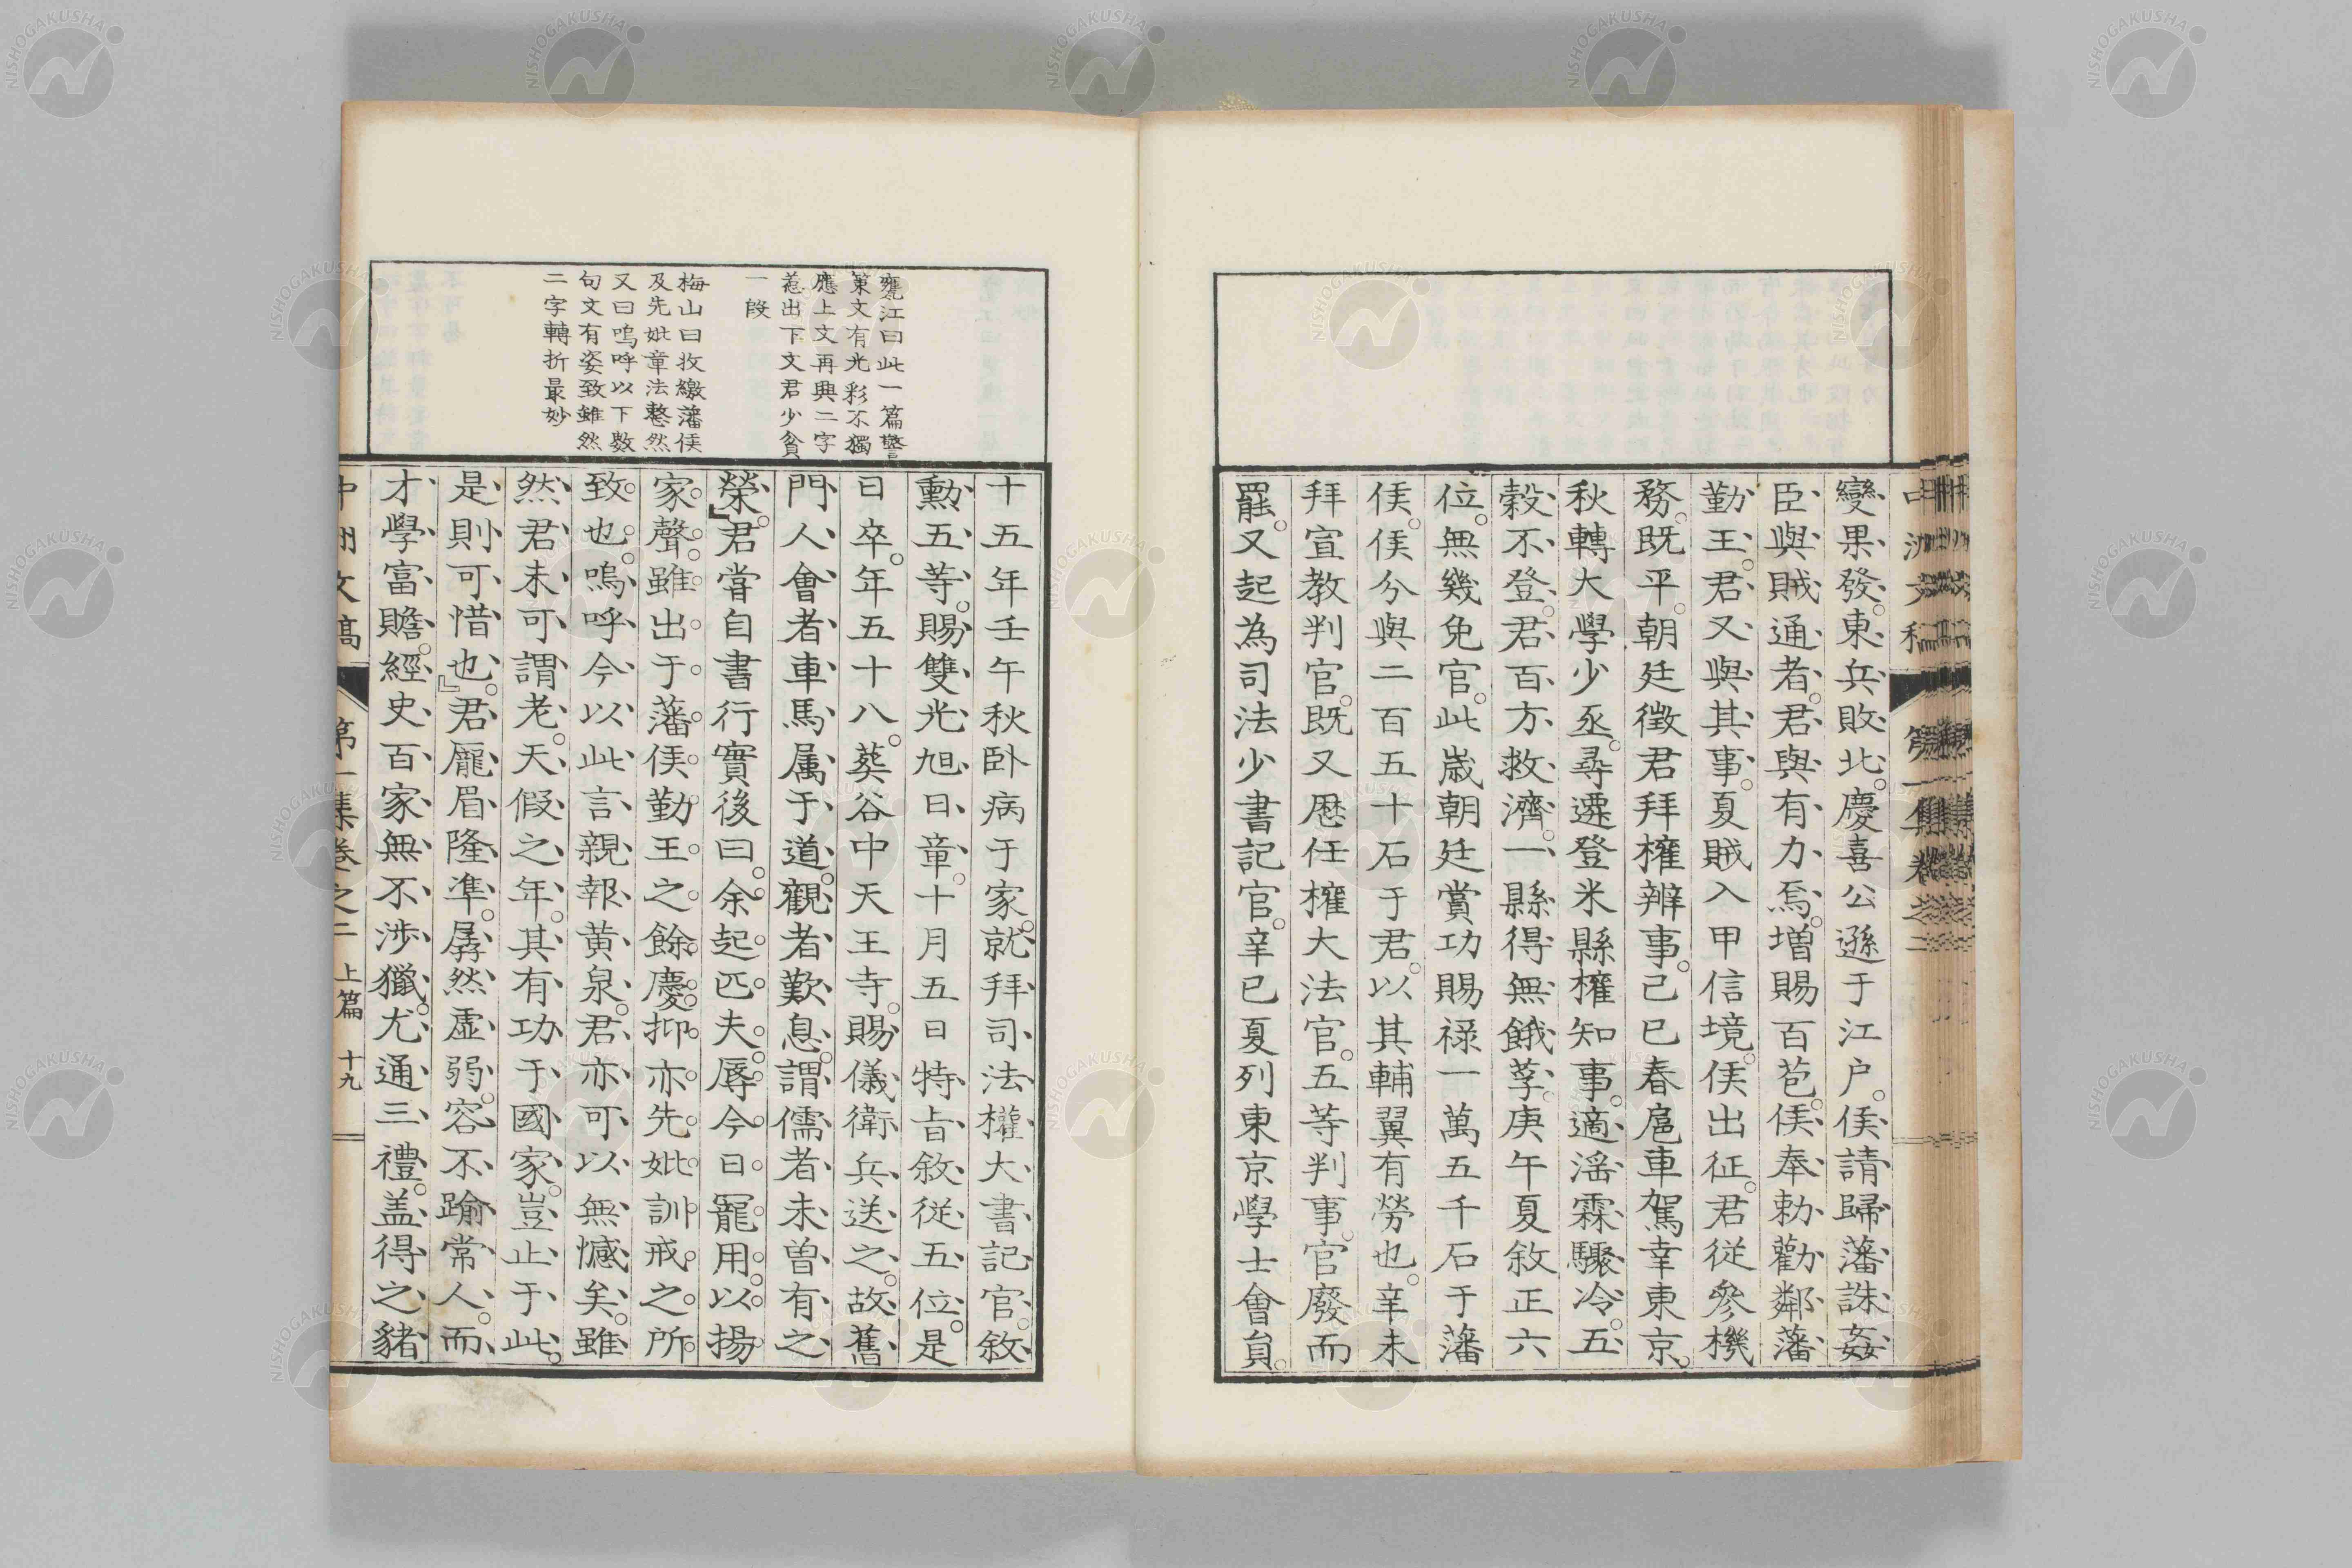 變果發。東兵敗北。慶喜公遜于江户。侯請歸藩誅姦
臣與賊通者。君與有力焉。増賜百苞。侯奉勅勸鄰藩
勤王。君又與其事。夏賊入甲信境。侯出征。君從參機
務。既平。朝廷徴君拜権辨事。己巳春扈車駕幸東京。
秋轉大學少丞。尋遷登米縣権知事。適滛霖驟冷。五
穀不登。君百方救濟。一縣得無餓莩。庚午夏敘正六
位。無幾免官。此歳朝廷賞功賜禄一萬五千石于藩
侯。侯分與二百五十石于君。以其輔翼有勞也。辛未
拜宣教判官。既又歴任権大法官。五等判事。官廢而
罷。又起為司法少書記官。辛巳夏列東京學士會員。
甕江曰此一篇警
策文有光彩不獨
應上文再興二字
惹出下文君少貧
一段
梅山曰收繳藩侯
及先妣章法整然
又曰嗚呼以下數
句文有姿致雖然
二字轉折最妙
十五年壬午秋卧病于家。就拜司法權大書記官。敘
勳五等。賜雙光旭日章。十月五日特旨敘從五位。是
日卒。年五十八。葵谷中天王寺。賜儀衛兵送之。故舊
門人會者車馬属于道。觀者歎息。謂儒者未曽有之
榮。君嘗自書行實後曰。余起匹夫。辱今日寵用。以揚
家聲。雖出于藩侯勤王之餘慶。抑亦先妣訓戒之所
致也。嗚呼今以此言親報黄泉。君亦可以無憾矣。雖
然君未可謂老。天假之年。其有功于國家。豈止于此。
是則可惜也。君龐眉隆準。孱然虚弱。容不踰常人。而
才學富贍。經史百家無不涉獵。尤通三禮。盖得之豬
中洲文稿
第一集卷之二
上篇
十九